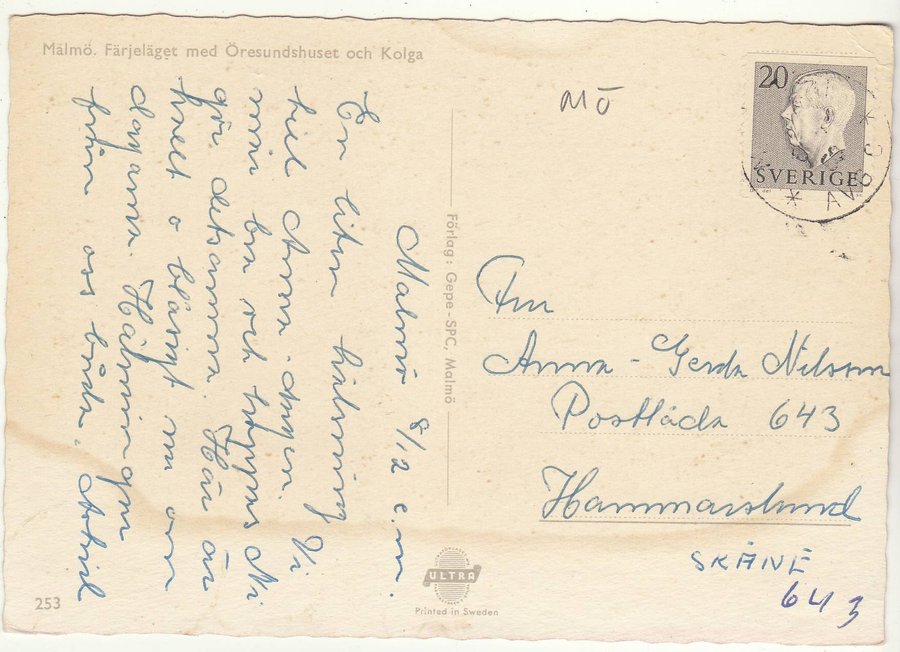 Malmö. Färjeläget med Öresundshuset och Kolga
Malmö 8/12 e.m.
En liten hälsning
till Anna-dagen. Vi
mår bra och hoppas Ni
gör detsamma. Här är
kallt o blåsigt nu om
dagarna. Hälsningar
från oss båda.
Förlag: Gepe-SPC, Malmö
MÖ
20
SVERIGE
Anna-Gerda Nilsson
Postlåda 643
Hammarslund
SKÅNE
643
253
ULTRA
Printed in Sweden